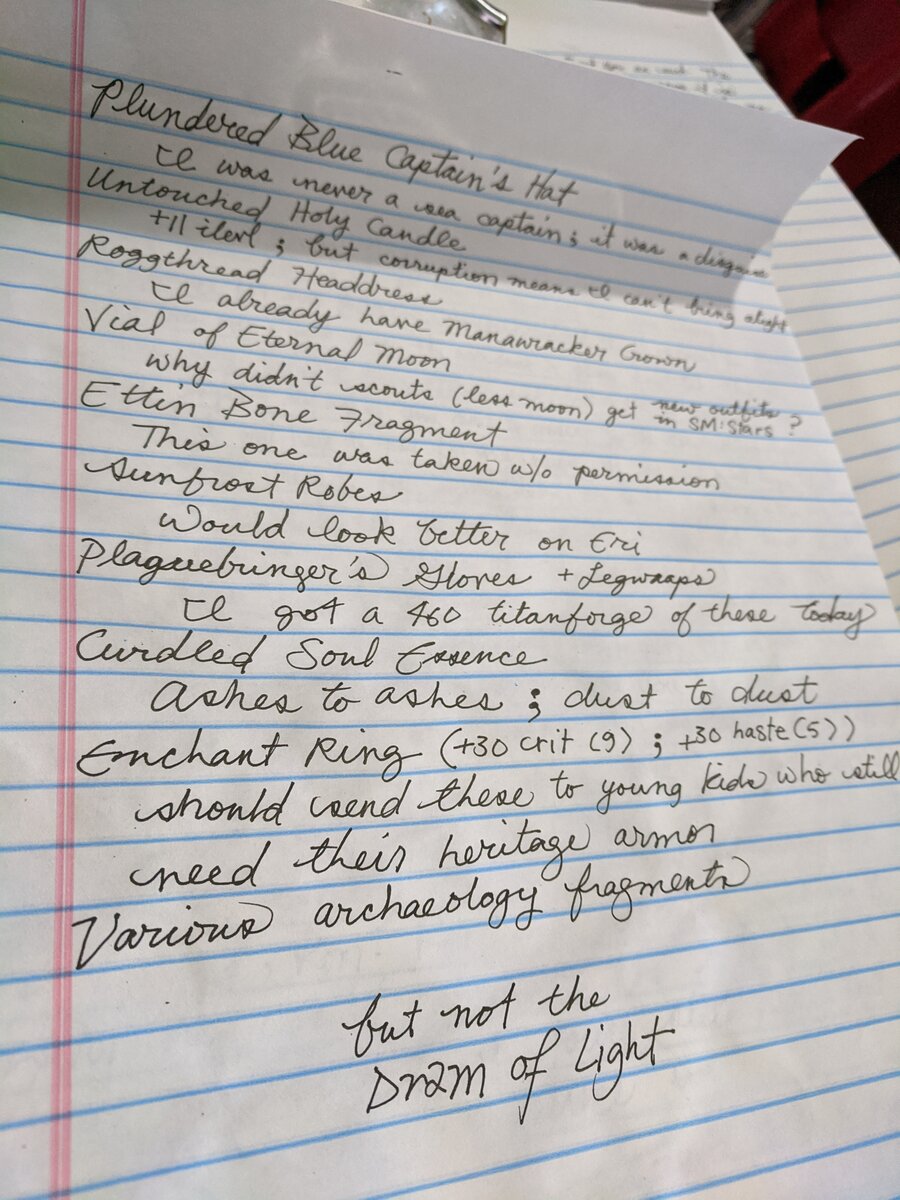 Plundered Blue Captain's Hat
I was never a sea captain; it was a disguise
Untouched Holy Candle
+11 ilevl; but corruption means I can't bring alight
Roggthread Headdress
I already have Manawracker Crown
Vial of Eternal Moon
why didn't scouts (less moon) get new outfits in SM:Stars?
Ettin Bone Fragment
This one was taken w/o permission
Sunfrost Robes
Would look better on Eri
Plaguebringer's Gloves + Legwraps
I got a 460 titanforge of these today
Curdled Soul Essence
Ashes to ashes; dust to dust
Enchant Ring (+30 crit (9); +30 haste (5))
should send these to young kids who still
need their heritage armor
Various archaeology fragments
but not the
Dram of Light